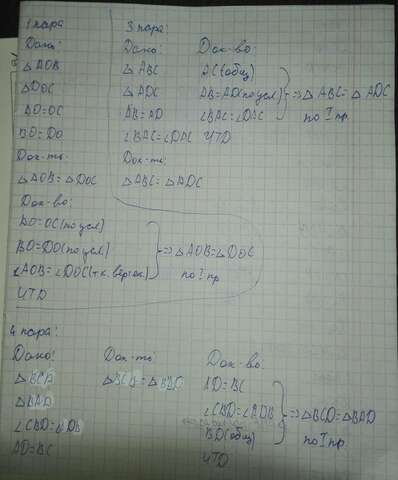 1 пара
Дано:
△AOB
△DOC
AO=OC
BO=DO
Док-ть:
△AOB=△DOC
Док-во:
AO=OC(по усл)
BO=DO(по усл)
∠AOB=∠DOC(т.к. верт.)
⇒△AOB=△DOC
по I пр
ЧТД
3 пара:
Дано:
△ABC
△ADC
AB=AD
∠BAC=∠DAC
Док-ть:
△ABC=△ADC
Док-во:
AC(общ)
AB=AD(по усл)
∠BAC=∠DAC
⇒△ABC=△ADC
по I пр.
ЧТД
4 пара:
Дано:
△BCD
△BAD
∠CBD=∠ADB
AD=BC
Док-ть:
△BCD=△BAD
Док-во:
AD=BC
∠CBD=∠ADB
BD(общ)
⇒△BCD=△BAD
по I пр.
ЧТД